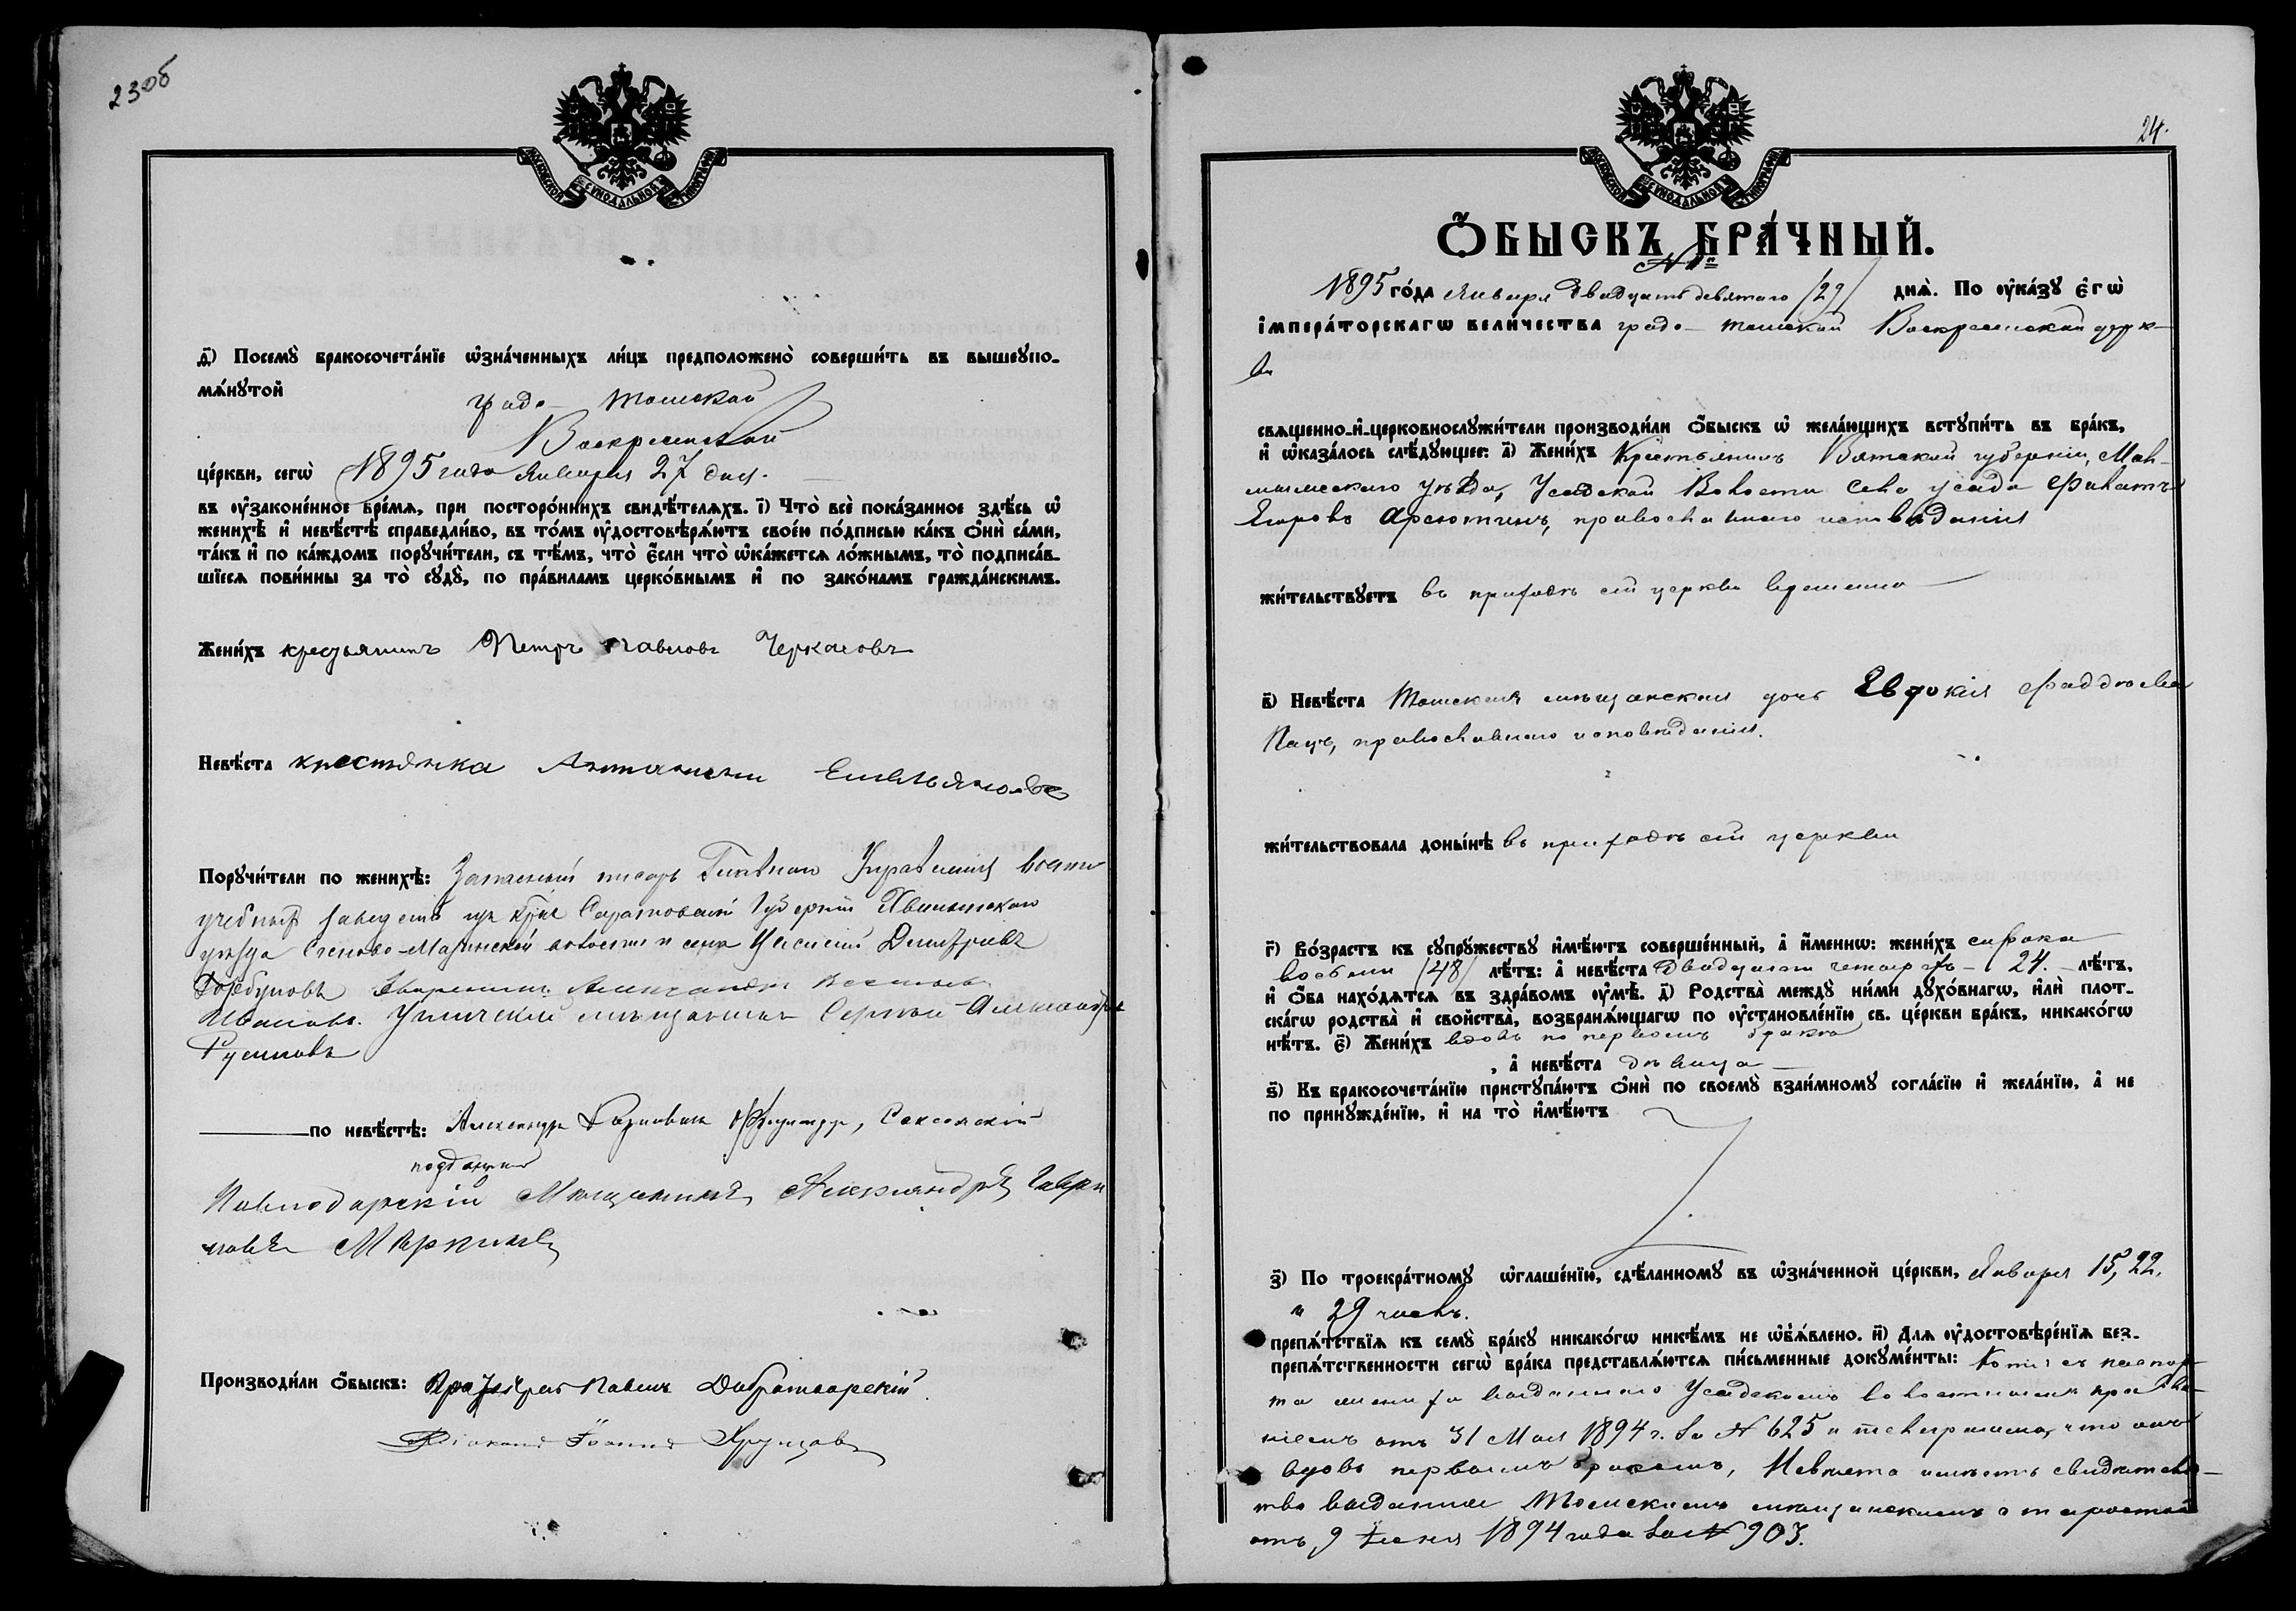 23об
МОСКОВСКОЙ СѴНОДАЛЬНОЙ ТИПОГРАФІИ
д҃і) Посемꙋ̀ бракосочета́нїе ѡ҆зна́ченныхъ ли́цъ предположено̀ соверши́ть въ вышеꙋпо-
мѧ́нꙋтой
градо- Томской
Воскресенской
це́ркви, сегѡ̀ 1895 года Января 27 дня.
въ ᲂу҆зако́ненное вре́мѧ, при посторо́ннихъ свидѣ́телѧхъ. і҃) Что̀ всѐ пока́занное здѣ́сь ѡ҆
женихѣ̀ и҆ невѣ́стѣ справедли́во, въ то́мъ ᲂу҆достовѣрѧ́ютъ свое́ю по́дписью ка́къ ѻ҆нѝ са́ми,
та́къ и҆ по ка́ждомъ порꙋчи́тели, съ тѣ́мъ, что̀ є҆́сли что̀ ѡ҆ка́жетсѧ ло́жнымъ, то̀ подписа́в-
шїесѧ пови́нны за то̀ сꙋдꙋ̀, по пра́виламъ церко́внымъ и҆ по зако́намъ гражда́нскимъ.
Жени́хъ крестьянинъ Петръ Павловъ Черкасовъ
Невѣ́ста крестьянка Емельянова
Порꙋчи́тели по женихѣ̀: Запасный писарь Главнаго Управленія военно
учебныхъ заведеній изъ Саратовской Губерніи Хвалынскаго
уѣзда волости и села Дмитріевъ
Горбуновъ Александръ
Ивановъ. мѣщанинъ Сергѣй Александровъ

по невѣ́стѣ: Александръ Саксонскій
подданный
Павлодарскій Мѣщанинъ Александръ Гаври
ловъ Маркинъ
Производи́ли ѻ҆́быскъ: Протоіерей Павелъ Добротворскій.
Діаконъ Іоаннъ Хрущовъ
24.
МОСКОВСКОЙ СѴНОДАЛЬНОЙ ТИПОГРАФІИ
Ѻ҆́БЫСКЪ БРА́ЧНЫЙ.
1895 го́да Января двадцать девятаго /29/ днѧ̀. По ᲂу҆ка́зꙋ є҆гѡ̀
і҆мпера́торскагѡ вели́чества градо- Томской Воскресенской церк-
ви
свѧщенно-и҆-церковнослꙋжи́тели производи́ли ѻ҆́быскъ ѡ҆ жела́ющихъ встꙋпи́ть въ бра́къ,
и҆ ѡ҆каза́лось слѣ́дꙋющее: а҃) Жени́хъ Крестьянинъ Вятской губерніи, Мал-
мыжскаго уѣзда, Усадской Волости села Усада Филатъ
Егоровъ Арсютинъ, православнаго исповѣданія
жи́тельствꙋетъ въ приходѣ сей церкви временно
в҃) Невѣ́ста Томская мѣщанская дочь Евдокія Фаддѣева
Пацъ, православнаго исповѣданія.
жи́тельствовала доны́нѣ въ приходѣ сей церкви
г҃) Во́зрастъ къ сꙋпрꙋ́жествꙋ и҆мѣ́ютъ соверше́нный, а҆ и҆́меннѡ: жени́хъ сорока
восьми /48/ лѣ́тъ: а҆ невѣ́ста двадцати четырехъ - 24. - лѣ́тъ,
и҆ ѻ҆́ба нахо́дѧтсѧ въ здра́вомъ ᲂу҆мѣ̀. д҃) Родства̀ междꙋ̀ ни́ми дꙋхо́внагѡ, и҆лѝ плот-
ска́гѡ родства̀ и҆ сво́йства, возбранѧ́ющагѡ по ᲂу҆становле́нїю св. це́ркви бра́къ, никако́гѡ
нѣ́тъ. є҃) Жени́хъ вдовъ по первомъ бракѣ
, а҆ невѣ́ста дѣвица
ѕ҃) Къ бракосочета́нїю пристꙋпа́ютъ ѻ҆нѝ по своемꙋ̀ взаи́мномꙋ согла́сїю и҆ жела́нїю, а҆ не
по принꙋжде́нїю, и҆ на то̀ и҆мѣ́ютъ
з҃) По троекра́тномꙋ ѡ҆глаше́нїю, сдѣ́ланномꙋ въ ѡ҆зна́ченной це́ркви, Января 15, 22.
и 29 чиселъ.
препѧ́тствїѧ къ семꙋ̀ бра́кꙋ никако́гѡ никѣ́мъ не ѡ҆б̾ѧ́влено. и҃) Длѧ ᲂу҆достовѣре́нїѧ без-
препѧ́тственности сегѡ̀ бра́ка представлѧ́ютсѧ пи́сьменные докꙋме́нты: Копія съ паспор-
та жениха выданнаго Усадскимъ волостнымъ правле-
ніемъ отъ 31 Мая 1894 г. за № 625 и телеграмма, что онъ
вдовъ первымъ бракомъ, Невѣста имѣетъ свидѣтель-
тво выданное Томскимъ мѣщанскимъ старостой
отъ 9 Іюня 1894 года за № 903.